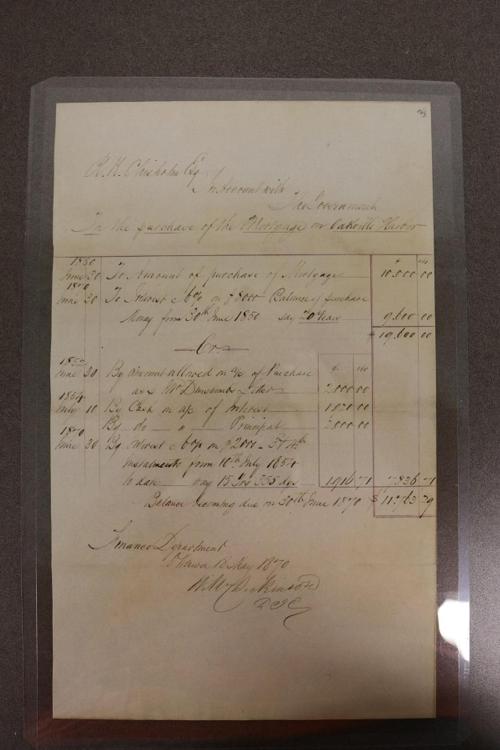 R. K. Chisholm Esq
In Account with
The Government
In the purchase of the Mortgage on Oakville Harbor
$ cts
1850
June 30 To Amount of purchase of Mortgage 10,000 00
1870
June 30 To Interest @ 6% on $8000 Balance of purchase
Money from 30th June 1850 say 20 Years 9,600 00
$ 19,600 00
Cr
$ cts
1850
June 30 By amount allowed on a/c of Purchase
as Mr Letter 2,000.00
1854
July 10 By Cash on a/c of Interest
By do " " Principal 2,000 00
1870
June 30 By Interest @ 6% on $2000
Instalments from 10th July 1854
to date say 15 Yrs 355 dys 1,914.71
Balance becoming due on 30th June 1870
Finance Department
Ottawa May 1870